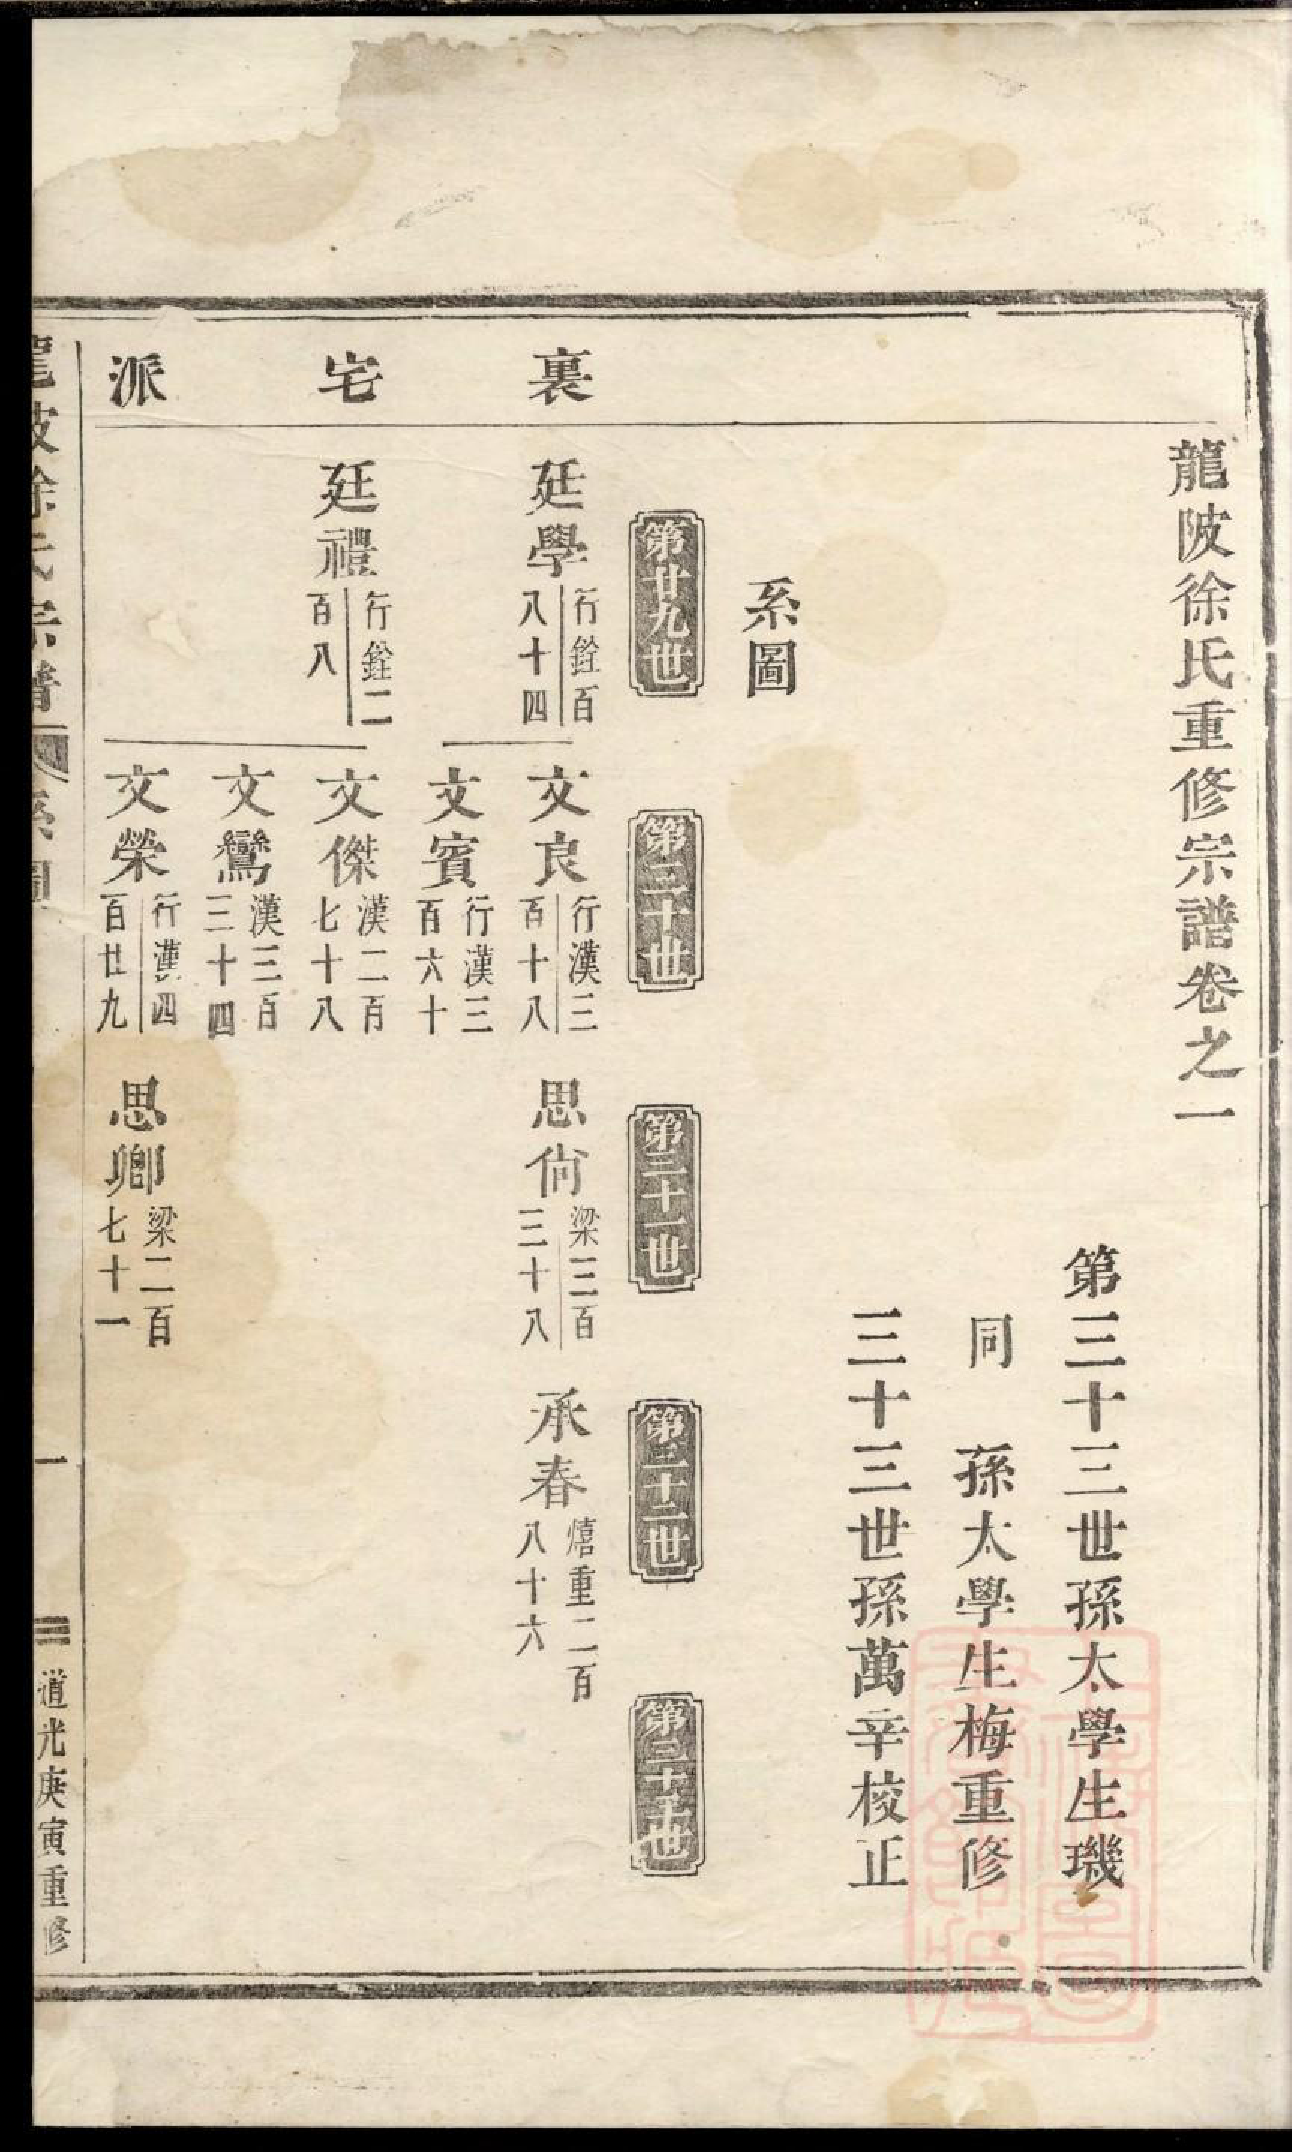 龍陂徐氏重修宗譜卷之一
第三十三世孫太學生璣
同 孫太學生梅重修
三十三世孫萬辛校正
系圖
第廿九世
第三十世
第三十一世
第三十二世
第三十三世
裏
廷學
行銓百
八十四
文良
行漢三
百十八
思尙
梁三百
三十八
承春
熺重二百
八十六
文賓
行漢三
百六十
宅
廷禮
行銓二
百八
文傑
漢二百
七十八
文鸞
漢三百
三十四
派
文榮
行漢四
百廿九
思卿
梁二百
七十一
龍陂徐氏宗譜
系圖
一
道光庚寅重修